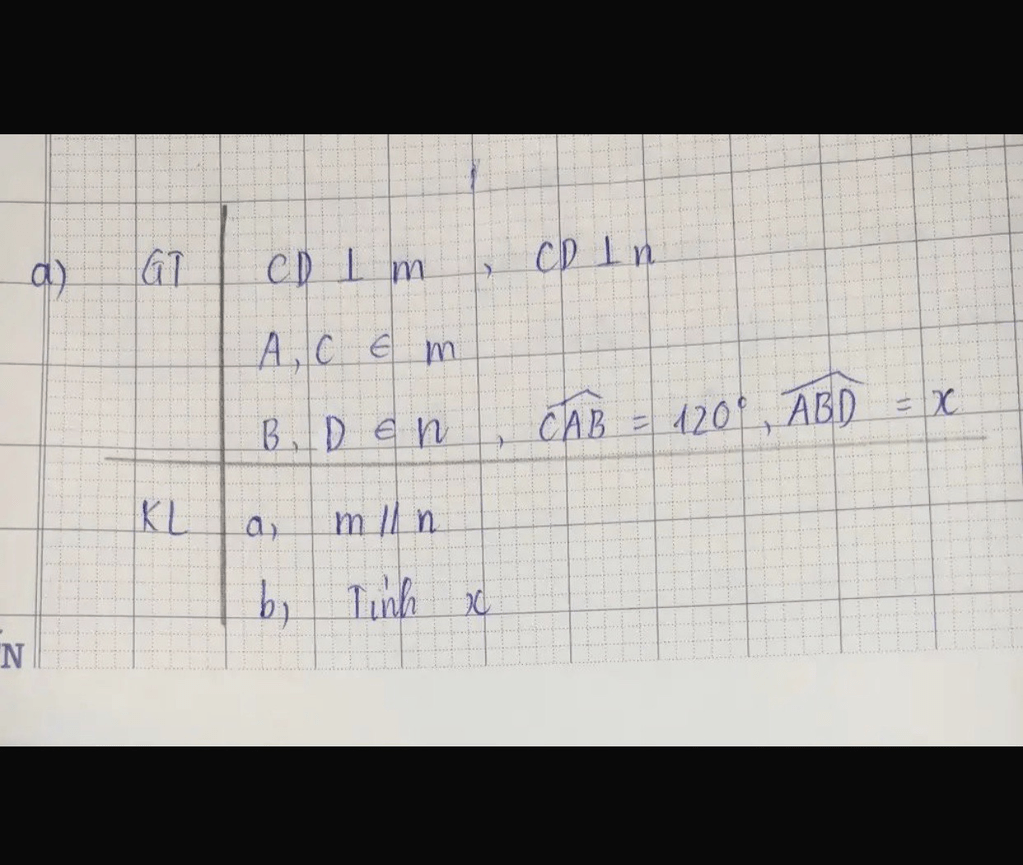 a) GT CD ⊥ m , CD ⊥ n
A, C ∈ m
B, D ∈ n , \widehat{CAB} = 120°, \widehat{ABD} = x
KL a, m // n
b, Tính x
N